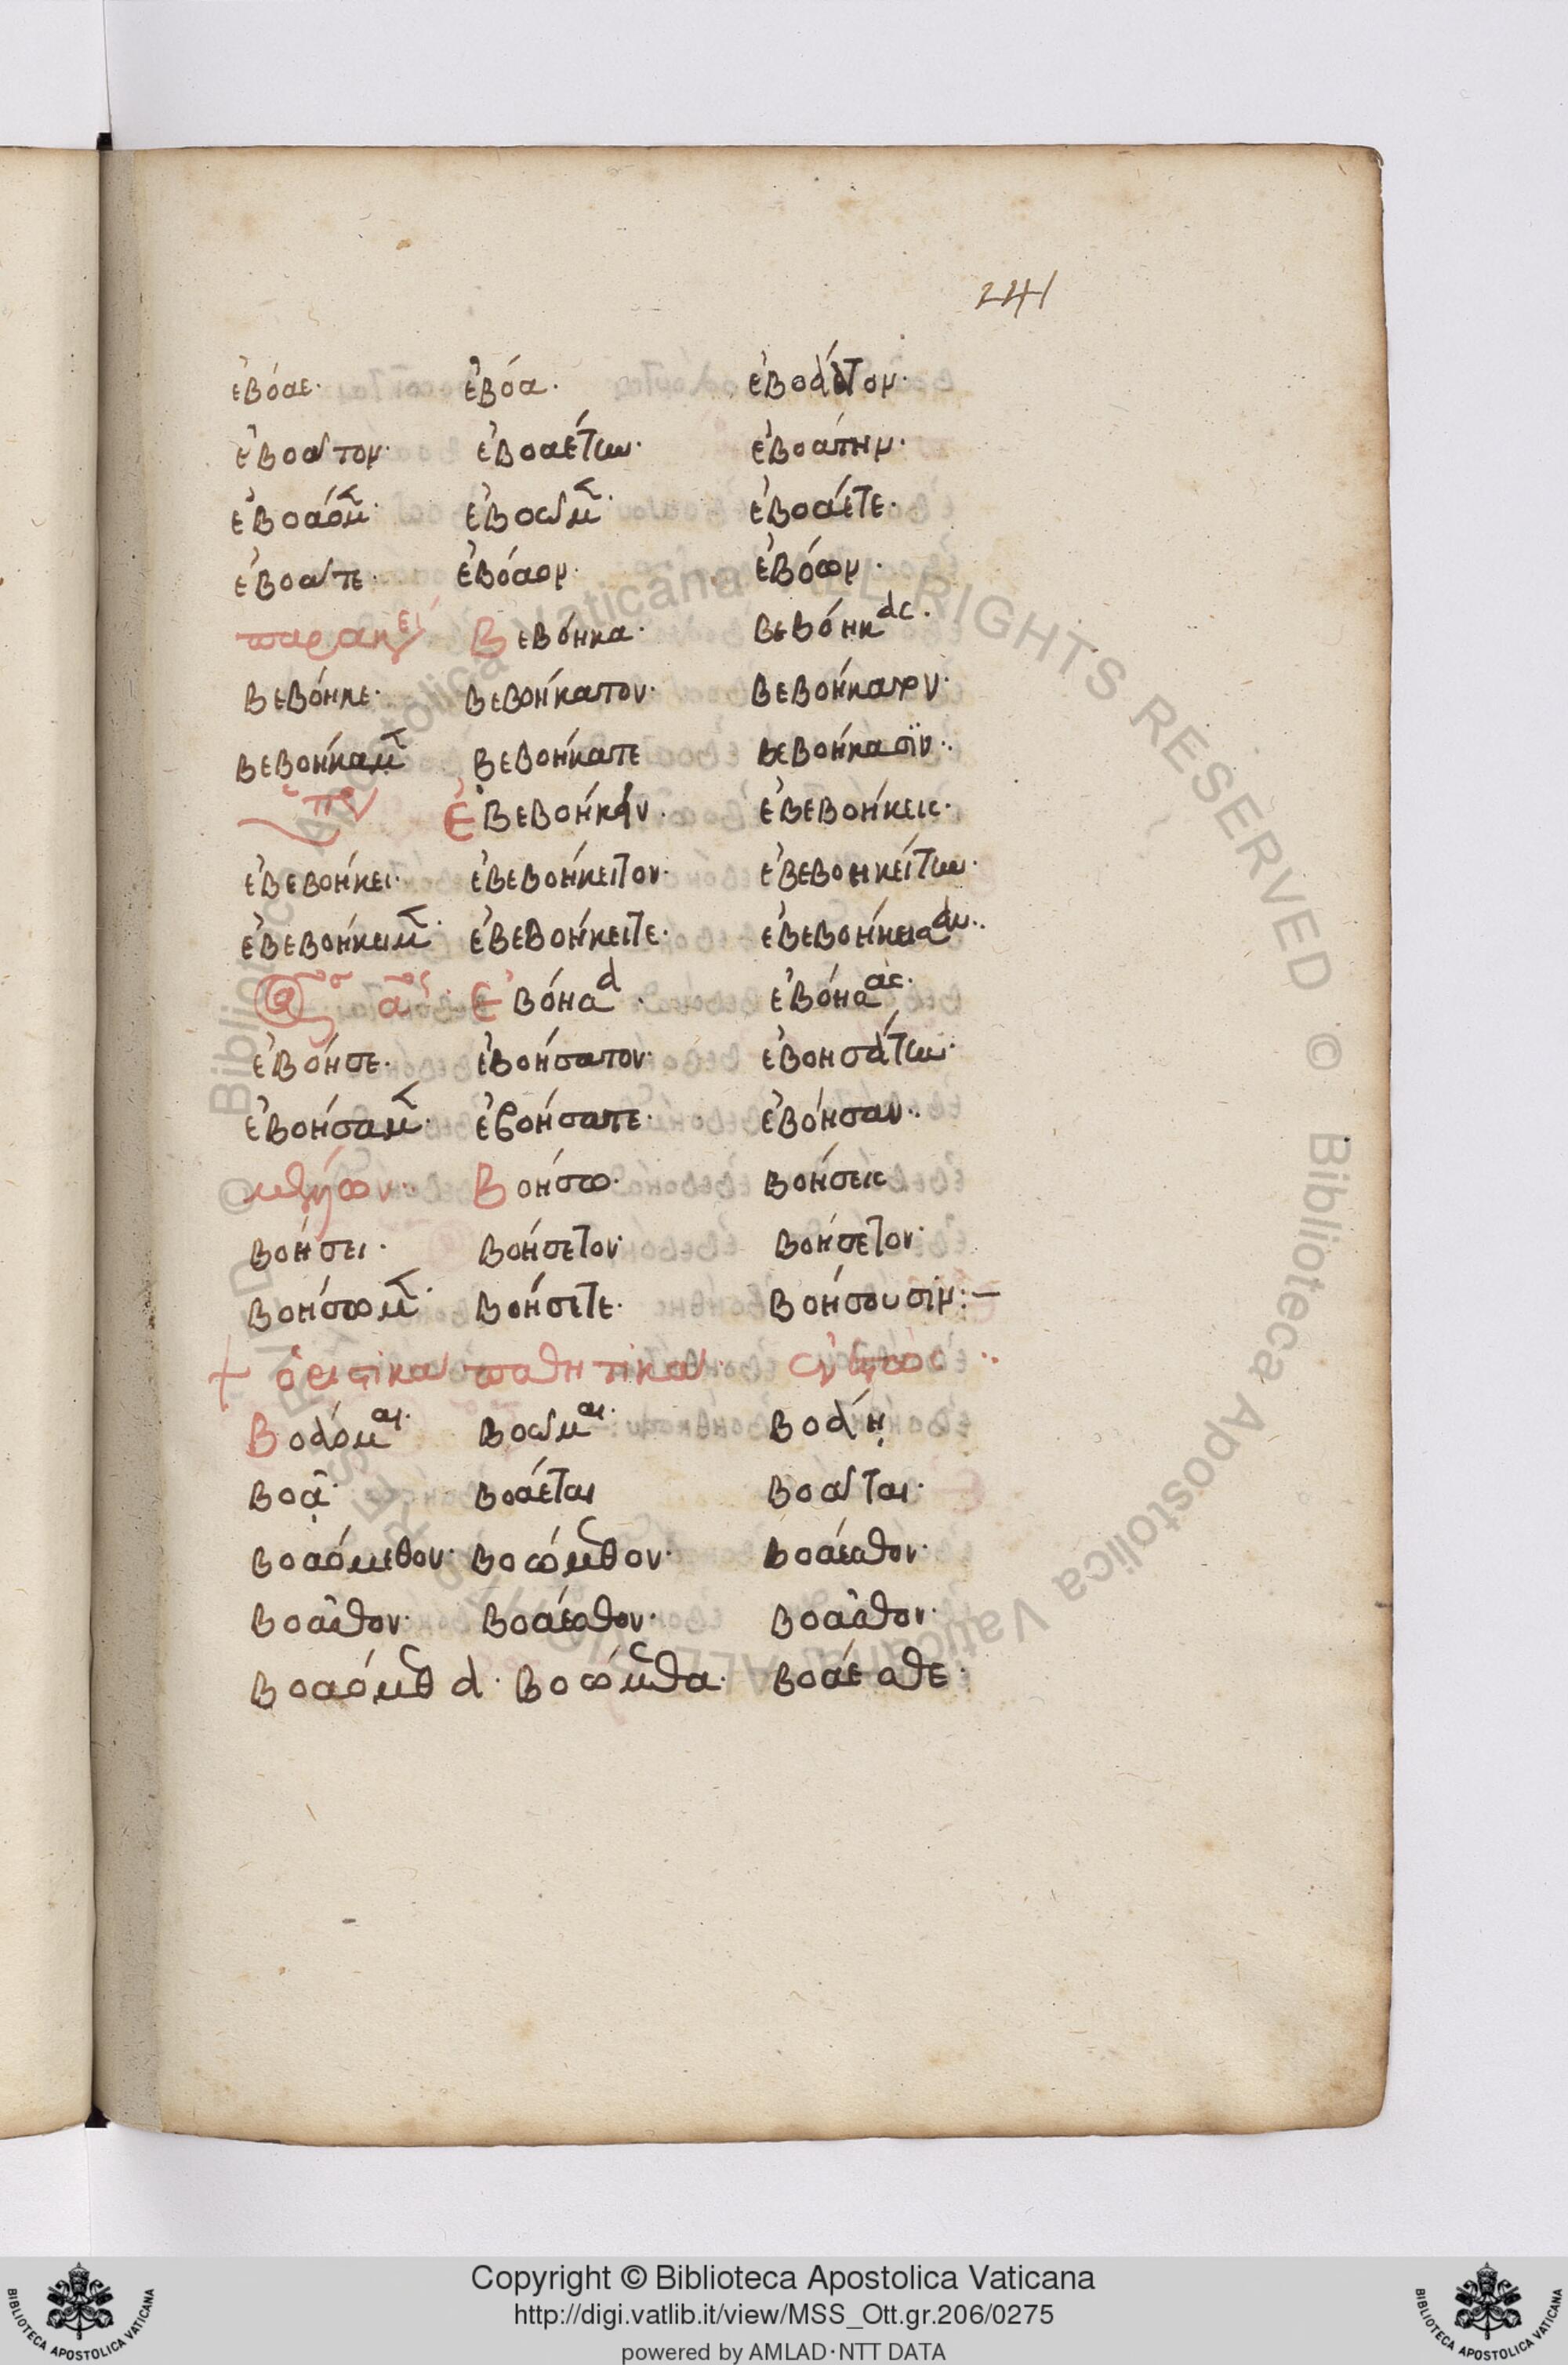 241
ἐβόαε· ἐβόα· ἐβοάετον·
ἐβοᾶτον· ἐβοαέτην· ἐβοάτην·
ἐβοάομεν· ἐβοῶμεν· ἐβοάετε·
ἐβοᾶτε· ἐβόαον· ἐβόων·
παρακεί Βεβόηκα· βεβόηκας·
βεβόηκε· βεβοήκατον· βεβοήκατον·
βεβοήκαμεν βεβοήκατε βεβοήκασϊν·
Ἐβεβοήκειν· ἐβεβοήκεις·
ἐβεβοήκει· ἐβεβοήκειτον· ἐβεβοηκείτην·
ἐβεβοήκειμεν· ἐβεβοήκειτε· ἐβεβοήκεισαν·
Ἐβόησα· ἐβόησας·
ἐβόησε· ἐβοήσατον· ἐβοησάτην·
ἐβοήσαμεν· ἐβοήσατε· ἐβόησαν·
μέλλων· Βοήσω· βοήσεις
βοήσει· βοήσετον· βοήσετον·
βοήσωμεν· βοήσετε· βοήσουσιν:–
+ ὁριστικὰ παθητικά·
Βοάομαι· βοῶμαι· βοάῃ
βοᾷ· βοάεται βοᾶται·
βοαόμεθον· βοώμεθον· βοάεσθον·
βοᾶσθον· βοάεσθον· βοᾶσθον·
βοαόμεθα· βοώμεθα· βοάεσθε·
Copyright © Biblioteca Apostolica Vaticana
http://digi.vatlib.it/view/MSS_Ott.gr.206/0275
powered by AMLAD·NTT DATA
BIBLIOTECA APOSTOLICA VATICANA
BIBLIOTECA APOSTOLICA VATICANA